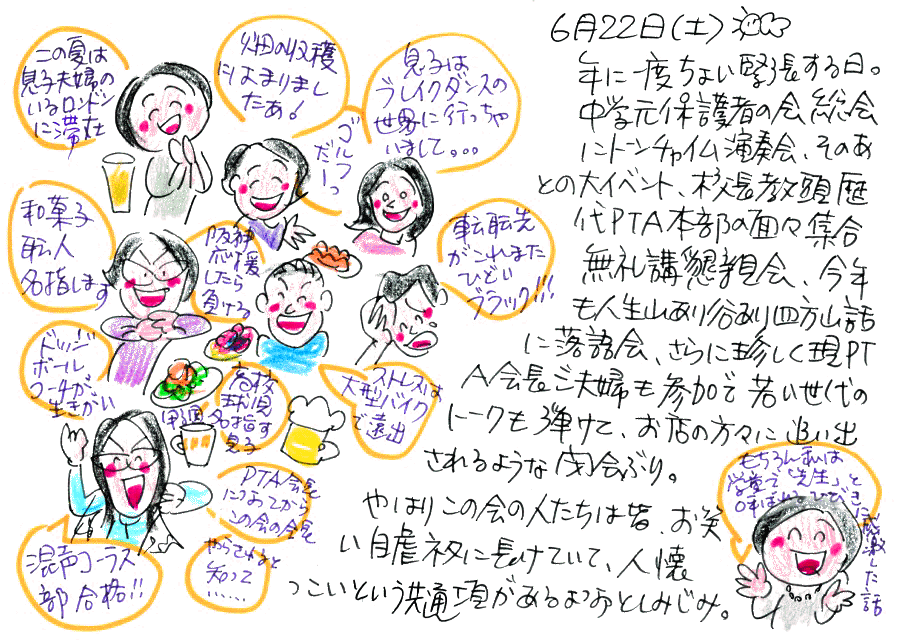 6月22日(土)
年に一度ちょい緊張する日。
中学元保護者の会総会
にトーンチャイム演奏会、そのあ
との大イベント、校長教頭歴
代PTA本部の面々集合
無礼講懇親会、今年
も人生山あり谷あり四方山話
に落語会、さらに珍しく現PT
A会長ご夫婦も参加で若い世代の
トークも弾けて、お店の方々に追い出
されるような宴会ぶり。
やはりこの会の人たちは皆、お笑
い自虐ネタに長けていて、人懐
っこいという共通項があるよなあとしみじみ。
この夏は
息子夫婦の
いるロンドン
に滞在
畑の収穫
にはまりまし
たあ!
ゴルフっ
だーっ
息子は
ブレイクダンスの
世界に行っちゃ
いまして。。。
和菓子
職人
名指します
阪神
応援
したら
負ける
転職先
がこれまた
ひどい
ブラック!!!
ドッジ
ボール
コーチが
生きがい
高校
球児
甲子園
名指す
息子
ストレスは
大型バイク
で遠出
PTA会長
につおてがら
この会の会長
やらされると
知って
......
混声コーラス
部合格!!
もちろん私は
学童で「先生」と
呼ばれるひびきに感激した話